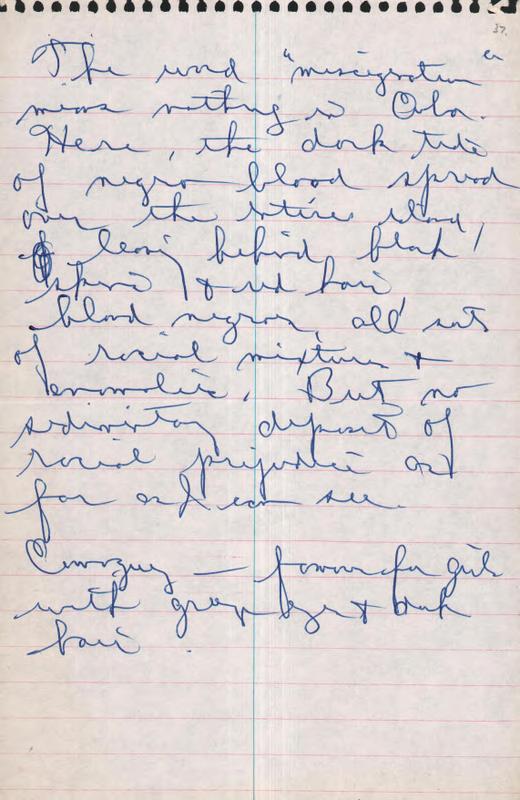 37.
The word "miscegenation"
means nothing in Cuba.
Here, the dark tide
of negro blood spread
over the entire island,
leaving behind black
& red hair
blond negroes, all sorts
of racial mixtures +
anomalies. But no
sedimentary deposit of
racial prejudice as
far as I can see.
Camaguey — famous for girls
with gray eyes + dark
hair.